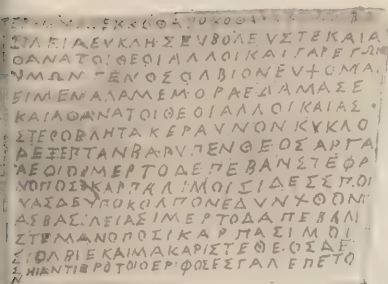 ΕΚΚΟΘΑΡΟΚΟΘΑ
ΣΙΛΕΙΑΕΥΚΛΗΣΕΥΒΟΛΕΥΣΤΕΚΑΙΑ
ΘΑΝΑΤΟΙΘΕΟΙΑΛΛΟΙΚΑΙΓΑΡΕΓΩΝ
ΥΜΩΝΓΕΝΟΣΟΛΒΙΟΝΕΥΧΟΜΑ
ΕΙΜΕΝΑΛΑΜΕΜΟΡΑΕΔΑΜΑΣΕ
ΚΑΙΑΘΑΝΑΤΟΙΘΕΟΙΑΛΛΟΙΚΑΙΑΣ
ΣΤΕΡΟΒΛΗΤΑΚΕΡΑΥΝΟΝΚΥΚΛΟ
ΔΕΞΕΠΤΑΝΒΑΡΥΠΕΝΘΕΟΣΑΡΓΑ
ΛΕΟΙΟΙΜΕΡΤΟΔΕΠΕΒΑΝΣΤΕΦΑ
ΝΟΠΟΣΙΚΑΡΠΑΛΙΜΟΙΣΙΔΕΣΣΠΟΙ
ΝΑΣΔΕΥΠΟΚΟΛΠΟΝΕΔΥΝΧΘΟΝΙ
ΑΣΒΑΣΙΛΕΙΑΣΙΜΕΡΤΟΔΑΠΕΒΑΝ
ΣΤΕΜΑΝΟΠΟΣΙΚΑΡΠΑΣΙΜΟΙ
ΣΙΟΛΒΙΕΚΑΙΜΑΚΑΡΙΣΤΕΘΕΟΣΔΕ
ΣΗΙΑΝΤΙΒΡΟΤΟΙΟΕΡΙΦΟΣΕΣΓΑΛΕΠΕΤΟ
Ν